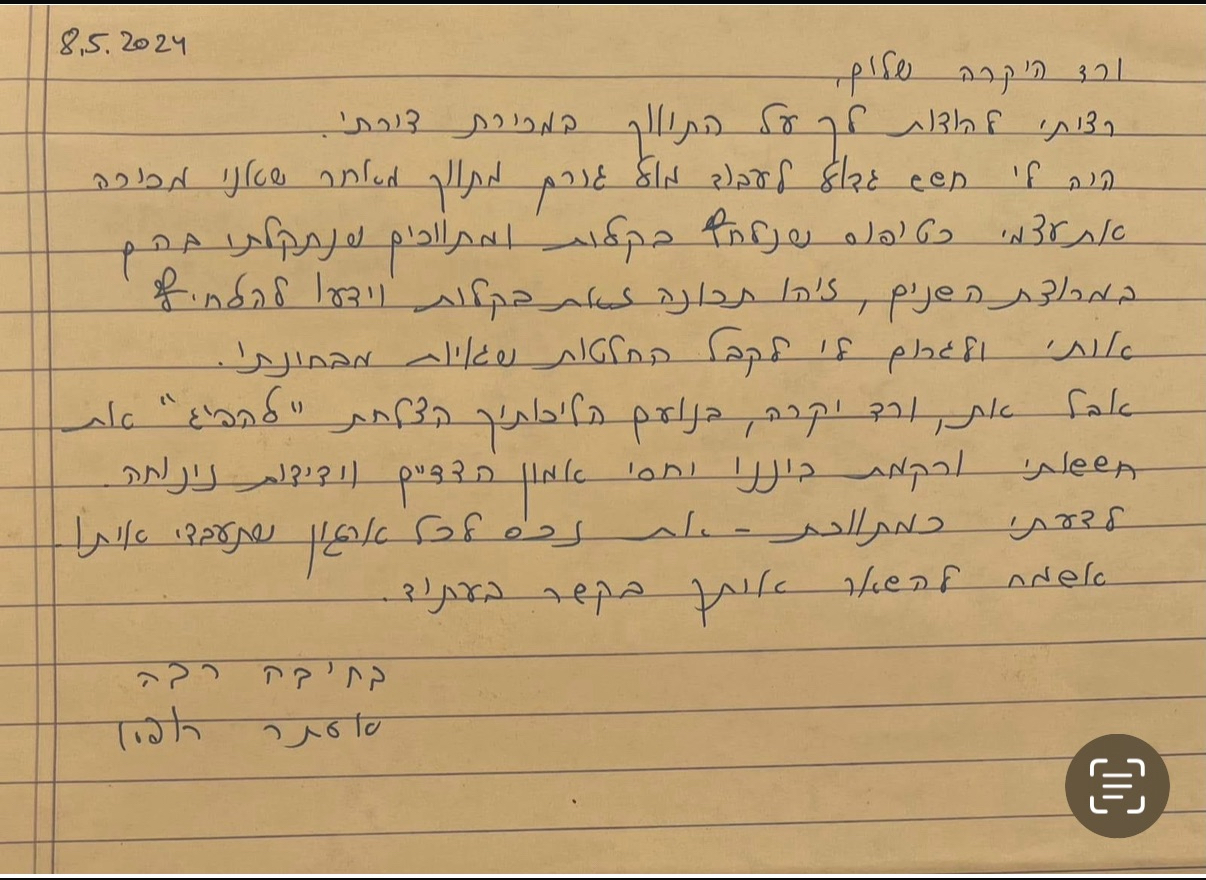 8.5.2024
ורד היקרה שלום,
רציתי להודות לך על התיווך במכירת דירתי.
היה לי חשש גדול לעבוד מול גורם מתווך מאחר שאני מכירה
את עצמי כטיפוס שנלחץ בקלות ומתווכים שנתקלתי בהם
במרוצת השנים, זיהו תכונה זאת בקלות וידעו להלחיץ
אותי ולגרום לי לקבל החלטות שגויות מבחינתי.
אבל את, ורד יקרה, בנועם הליכותיך הצלחת "להפיג" את
חששותי ורקמת ביננו יחסי אמון הדדיים וידידות נינוחה.
לדעתי כמתווכת - את נכס לכל ארגון שתעבדי איתו.
אשמח להשאר איתך בקשר בעתיד.
בחיבה רבה
אסתר